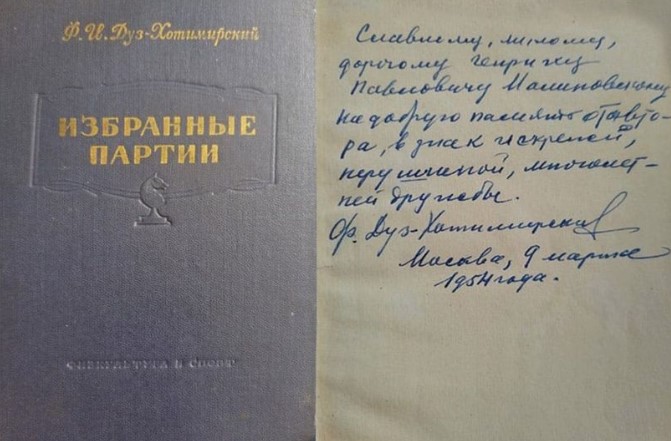 Ф. И. Дуз-Хотимирский
ИЗБРАННЫЕ
ПАРТИИ
ФИЗКУЛЬТУРА И СПОРТ
Славному, милому,
дорогому Генриху
Павловичу Малиновскому
на добрую память от авто-
ра, в знак искреней,
нерушимой, многолет-
ней дружбы.
Ф. Дуз-Хотимирский
Москва, 9 марта
1954 года.